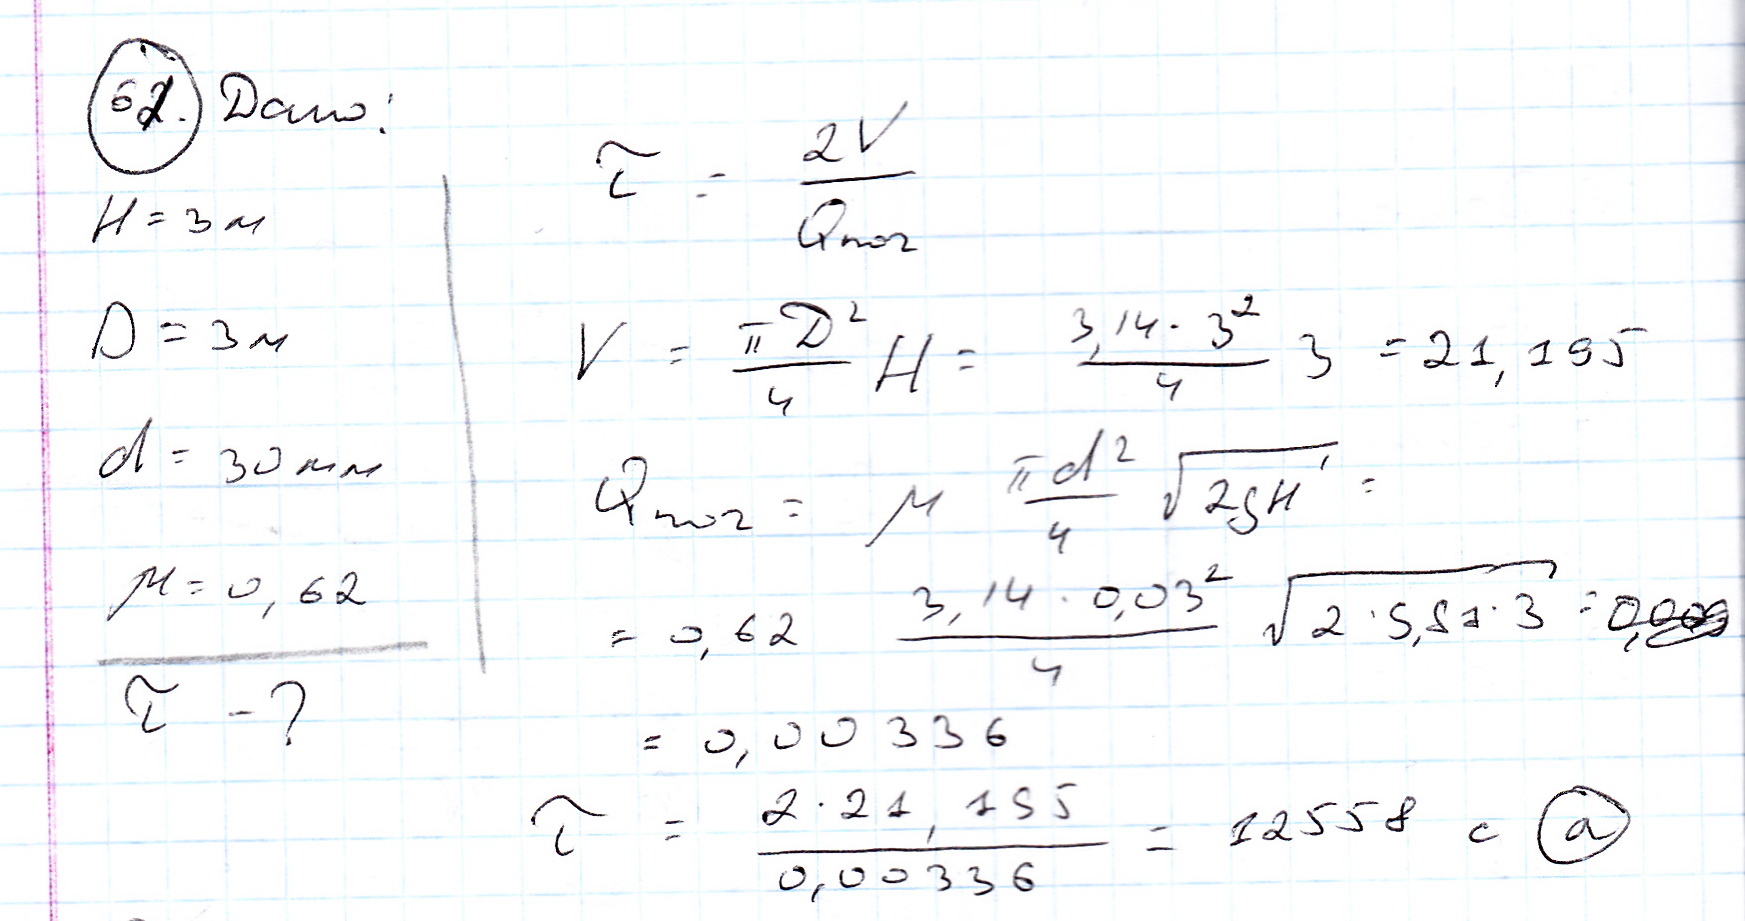 62. Дано:
H = 3 м
D = 3 м
d = 30 мм
μ = 0,62
τ - ?
τ = 2V / Qпоч
V = πD² / 4 H = 3,14 · 3² / 4 3 = 21,195
Qпоч = μ πd² / 4 √2gH =
= 0,62 3,14 · 0,03² / 4 √2 · 9,81 · 3 =
= 0,00336
τ = 2 · 21,195 / 0,00336 = 12558 с а